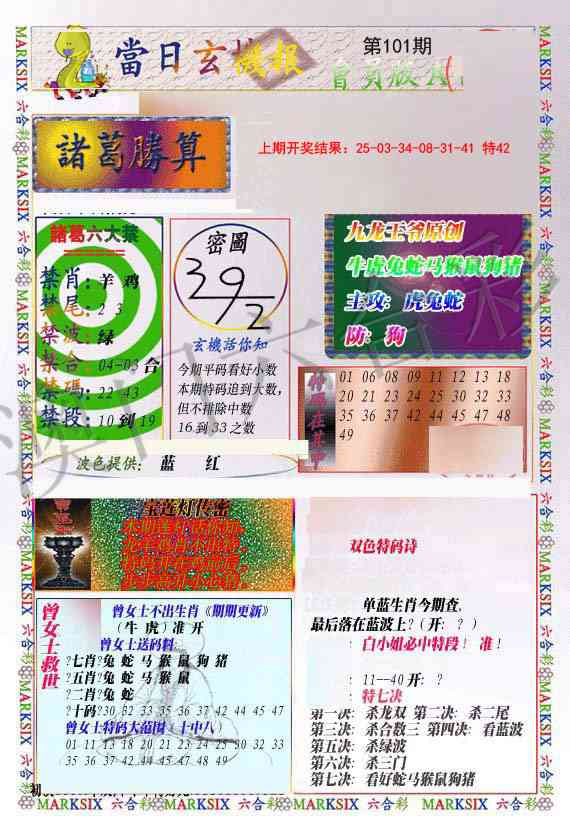 當日玄機报
第101期
會員版A
諸葛勝算
上期开奖结果：25-03-34-08-31-41 特42
諸葛六大禁
禁肖：羊 鸡
禁尾：2 3
禁波：绿
禁合：04-03合
禁碼：22-43
禁段：10到19
密圖
392
玄機活你知
今期平码看好小数
本期特码追到大数，
但不排除中数
16到33之数
波色提供： 蓝 红
九龙王爷原创
牛虎兔蛇马猴鼠狗猪
主攻：虎兔蛇
防：狗
特碼在其中
01 06 08 09 11 12 13 18
20 21 23 24 25 30 32 33
35 36 37 42 44 45 47 48
49
宝莲灯传密
曾女士救世
曾女士不出生肖《期期更新》
（牛 虎）准 开
曾女士送码料
?七肖?兔 蛇 马 猴 鼠 狗 猪
?五肖?兔 蛇 马 猴 鼠
?二肖?兔 蛇
?十码?30 82 33 35 36 37 42 44 45 47
曾女士特码大范围（十中八）
01 11 13 18 20 21 23 24 25 30 32 33
35 36 37 42 44 45 47 48 49
双色特码诗
单蓝生肖今期查，
最后落在蓝波上？（开：？）
：白小姐必中特段！ 准！
：11--40 开：？
：特七决
第一决：杀龙双 第二决：杀二尾
第三决：杀合数三 第四决：看蓝波
第五决：杀绿波
第六决：杀三门
第七决：看好蛇马猴鼠狗猪
MARKSIX 六合彩 MARKSIX 六合彩 MARKSIX 六合彩 MARKSIX 六合彩